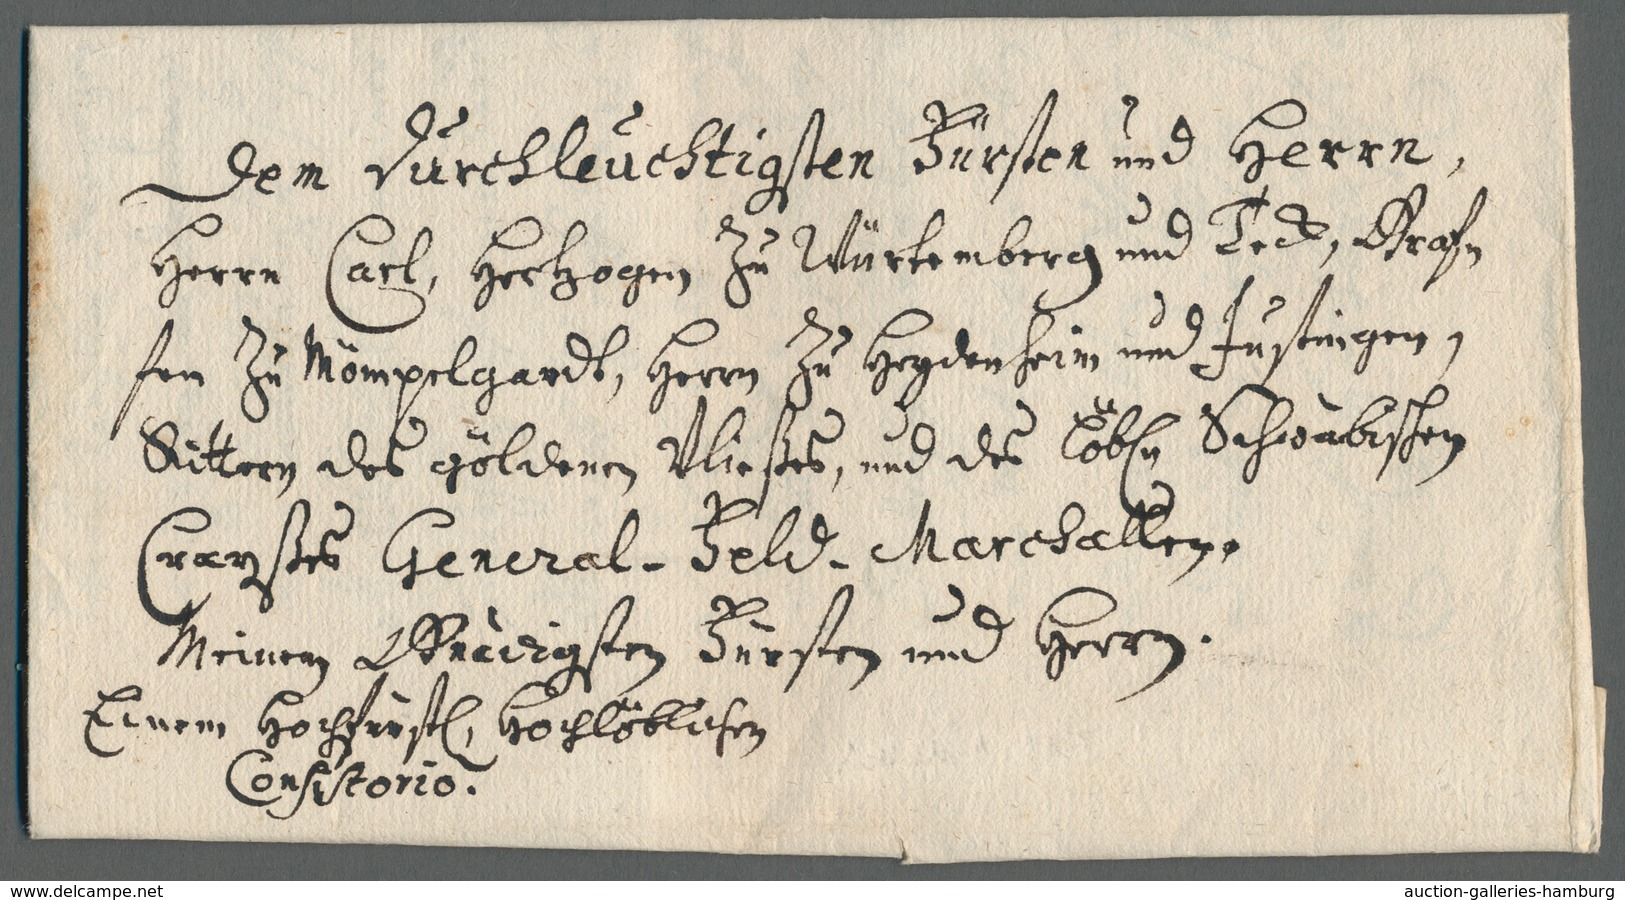 Dem Durchleuchtigsten Fürsten und Herrn,
Herrn Carl, Hertzogen zu Würtemberg und Teck, Grafen
fen zu Mömpelgardt, Herrn zu Heydenheim und Justingen,
Rittern des göldenen Vließes, und des Löbln Schwäbischen
Crayßes General-Feld-Marchallen.
Meinem Gnädigsten Fürsten und Herrn.
Einem Hochfürstl, Hochlöblichen
Consistorio.
www.delcampe.net
auction-galleries-hamburg